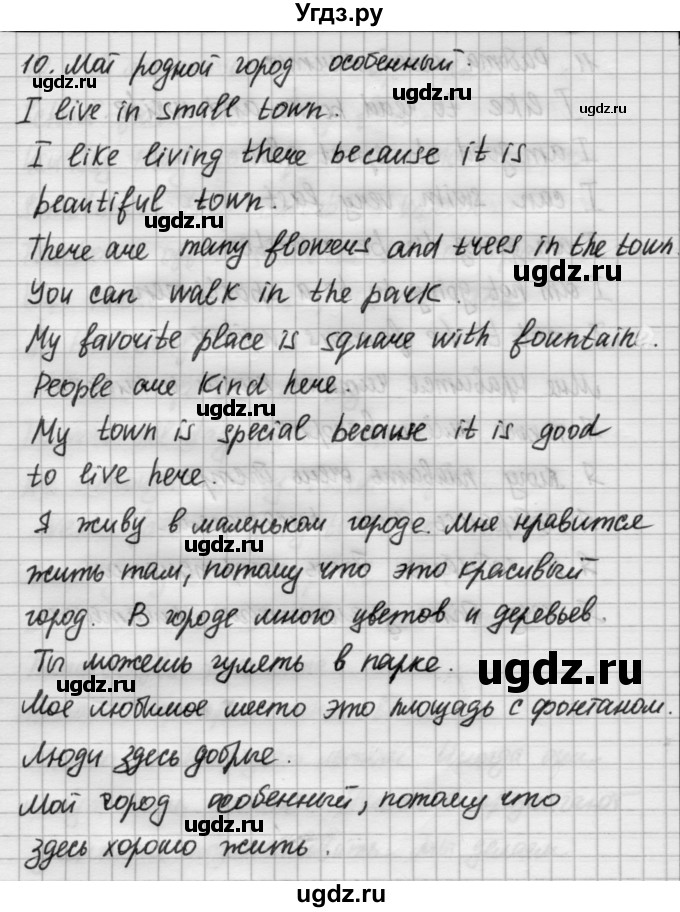 Угдз.ру
10. Мой родной город особенный.
ugdz.ru ugdz.ru
I live in small town.
I like living there because it is
ugdz.ru
beautiful town.
ugdz.ru
There are many flowers and trees in the town.
ugdz.ru
You can walk in the park.
My favorite place is square with fountain.
People are kind here.
ugdz.ru
My town is special because it is good
to live here.
ugdz.ru
Я живу в маленьком городе. Мне нравится
ugdz.ru
жить там, потому что это красивый
город. В городе много цветов и деревьев.
ugdz.ru
Ты можешь гулять в парке.
ugdz.ru ugdz.ru
Мое любимое место это площадь с фонтаном.
Люди здесь добрые.
ugdz.ru
Мой город особенный, потому что
ugdz.ru
здесь хорошо жить.
ugdz.ru